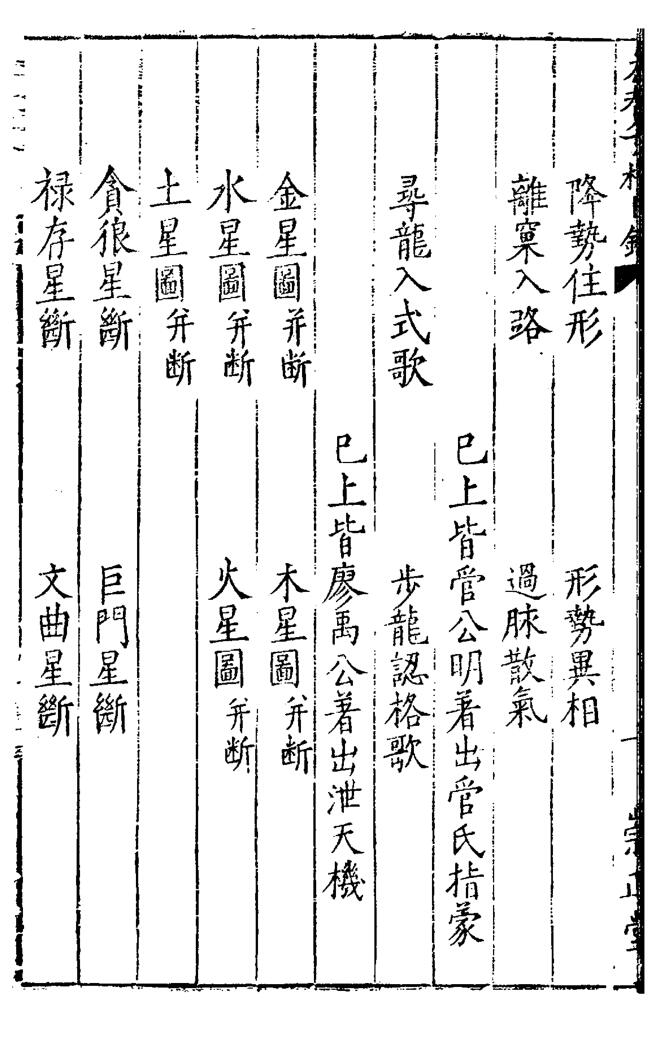 降勢住形　形勢異相
離窠入路　過脉散氣
巳上皆管公明著出管氏指蒙
尋龍入式歌　步龍認格歌
巳上皆廖禹公著出泄天機
金星圖并断　木星圖并断
水星圖并断　火星圖并断
土星圖并断
貪狼星斷　巨門星斷
禄存星斷　文曲星斷
崇正堂